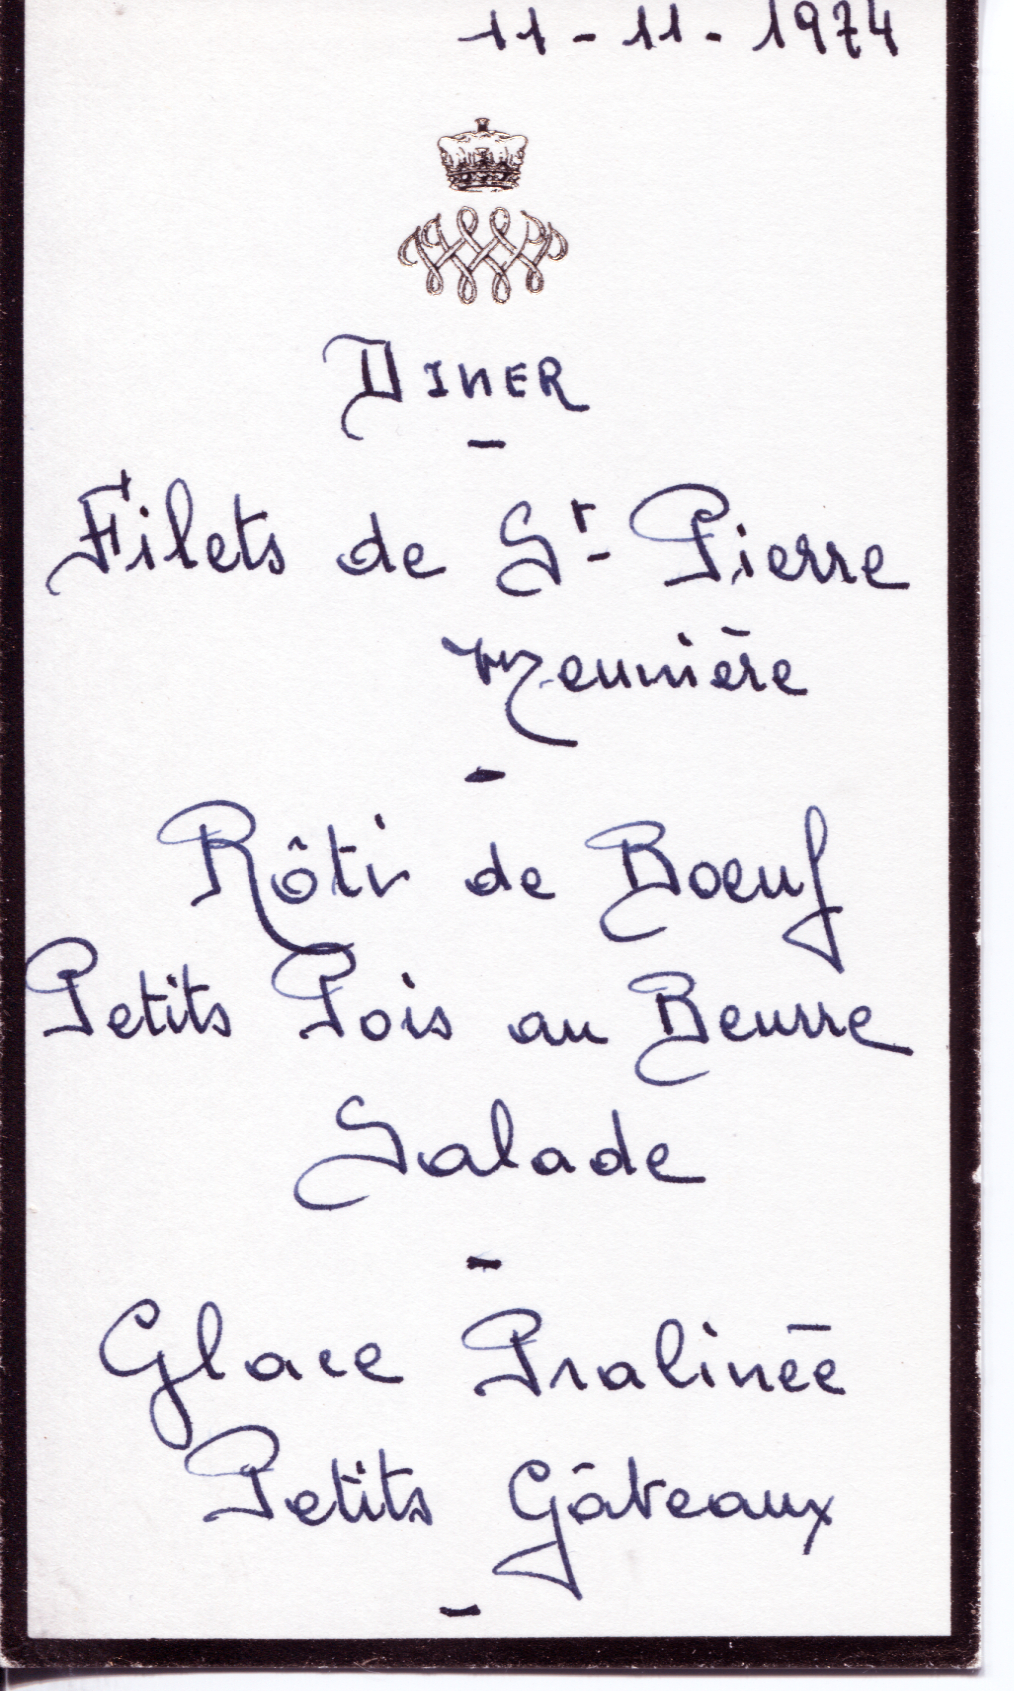 11-11-1974
DINER
-
Filets de Sr- Pierre
Meunière
-
Rôti de Boeuf
Petits Pois au Beurre
Salade
-
Glace Pralinée
Petits Gâteaux
-